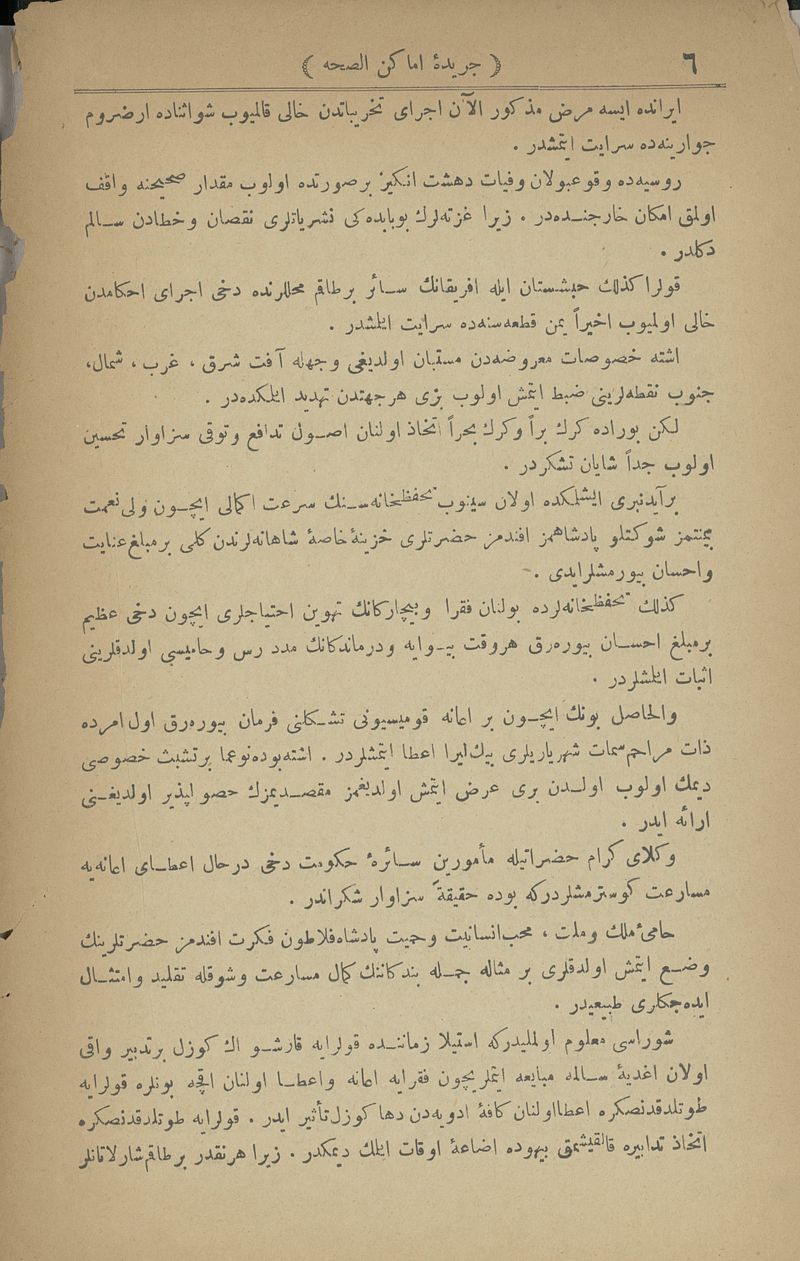 ٦
﴿ جريدۀ اماكن الصحه ﴾
ايرانده ايسه مرض مذكور الآن اجراى تخريباتدن خالى قالميوب شواثناده ارضروم
جوارينه‌ده سرايت ايتمشدر .
روسيه‌ده وقوعبولان وفيات دهشت انكيز برصورتده اولوب مقدار صحيحنه واقف
اولمق امكان خارجنده‌در . زيرا غزته‌لرك بوبابده‌كى نشرياتلرى نقصان وخطادن سالم
دكلدر .
قولرا كذلك حبشستان ايله افريقانك سائر برطاقم محللرنده دخى اجراى احكامدن
خالى اولميوب اخيراً يمن قطعه‌سنه‌ده سرايت ايلمشدر .
اشته خصوصات معروضه‌دن مستبان اولديغى وجهله آفت شرق ، غرب ، شمال،
جنوب نقطه‌لرينى ضبط ايتمش اولوب بزى هرجهتدن تهديد ايلمكده‌در .
لكن بوراده كرك براً وكرك بحراً اتخاذ اولنان اصول تدافع وتوقى سزاوار تحسين
اولوب جداً شايان تشكردر .
برآيدنبرى ايشلمكده اولان سينوب تحفظخانه‌سنك سرعت اكمالى ايچون ولى‌نعمت
بيمنتمز شوكتلو پادشاهمز افندمز حضرتلرى خزينۀ خاصۀ شاهانه‌لرندن كلى برمبلغ عنايت
واحسان بيورمشلرايدى .
كذلك تحفظخانه‌لرده بولنان فقرا وبيچاركانك تهوين احتياجلرى ايچون دخى عظيم
برمبلغ احسان بيوره‌رق هروقت بى‌وايه ودرماندكانك مدد رس وحاميسى اولدقلرينى
اثبات ايلمشلردر .
والحاصل بونك ايچون بر اعانه قوميسيونى تشكلنى فرمان بيوره‌رق اول امرده
ذات مراحم‌سمات شهرياريلرى بيك ليرا اعطا ايتمشلردر . اشته‌بوده نوعما برتشبث خصوصى
ديمك اولوب اولدن برى عرض ايتمش اولديغمز مقصديمزك حصولپذير اولديغنى
ارائه ايدر .
وكلاى كرام حضراتيله مأمورين سائرۀ حكومت دخى درحال اعطاى اعانه‌يه
مسارعت كوسترمشلردركه بوده حقيقةً سزاوار شكراندر .
حامئ ملك وملت ، محب‌انسانيت وحميت پادشاه فلاطون فكرت افندمز حضرتلرينك
وضع ايتمش اولدقلرى بر مثاله جمله بندكاننك كمال مسارعت وشوقله تقليد وامتثال
ايده‌جكلرى طبيعيدر .
شوراسى معلوم اولمليدركه استيلا زماننده قولرايه قارشو اك كوزل برتدبير واقى
اولان اغديۀ سالمه مبايعه ايتملريچون فقرايه اعانه واعطا اولنان اقچه بونلره قولرايه
طوتلدقدنصكره اعطااولنان كافۀ ادويه‌دن دها كوزل تأثير ايدر . قولرايه طوتلدقدنصكره
اتخاذ تدابيره قالقيشمق بيهوده اضاعۀ اوقات ايلمك ديمكدر . زيرا هرنقدر برطاقم شارلاتانلر